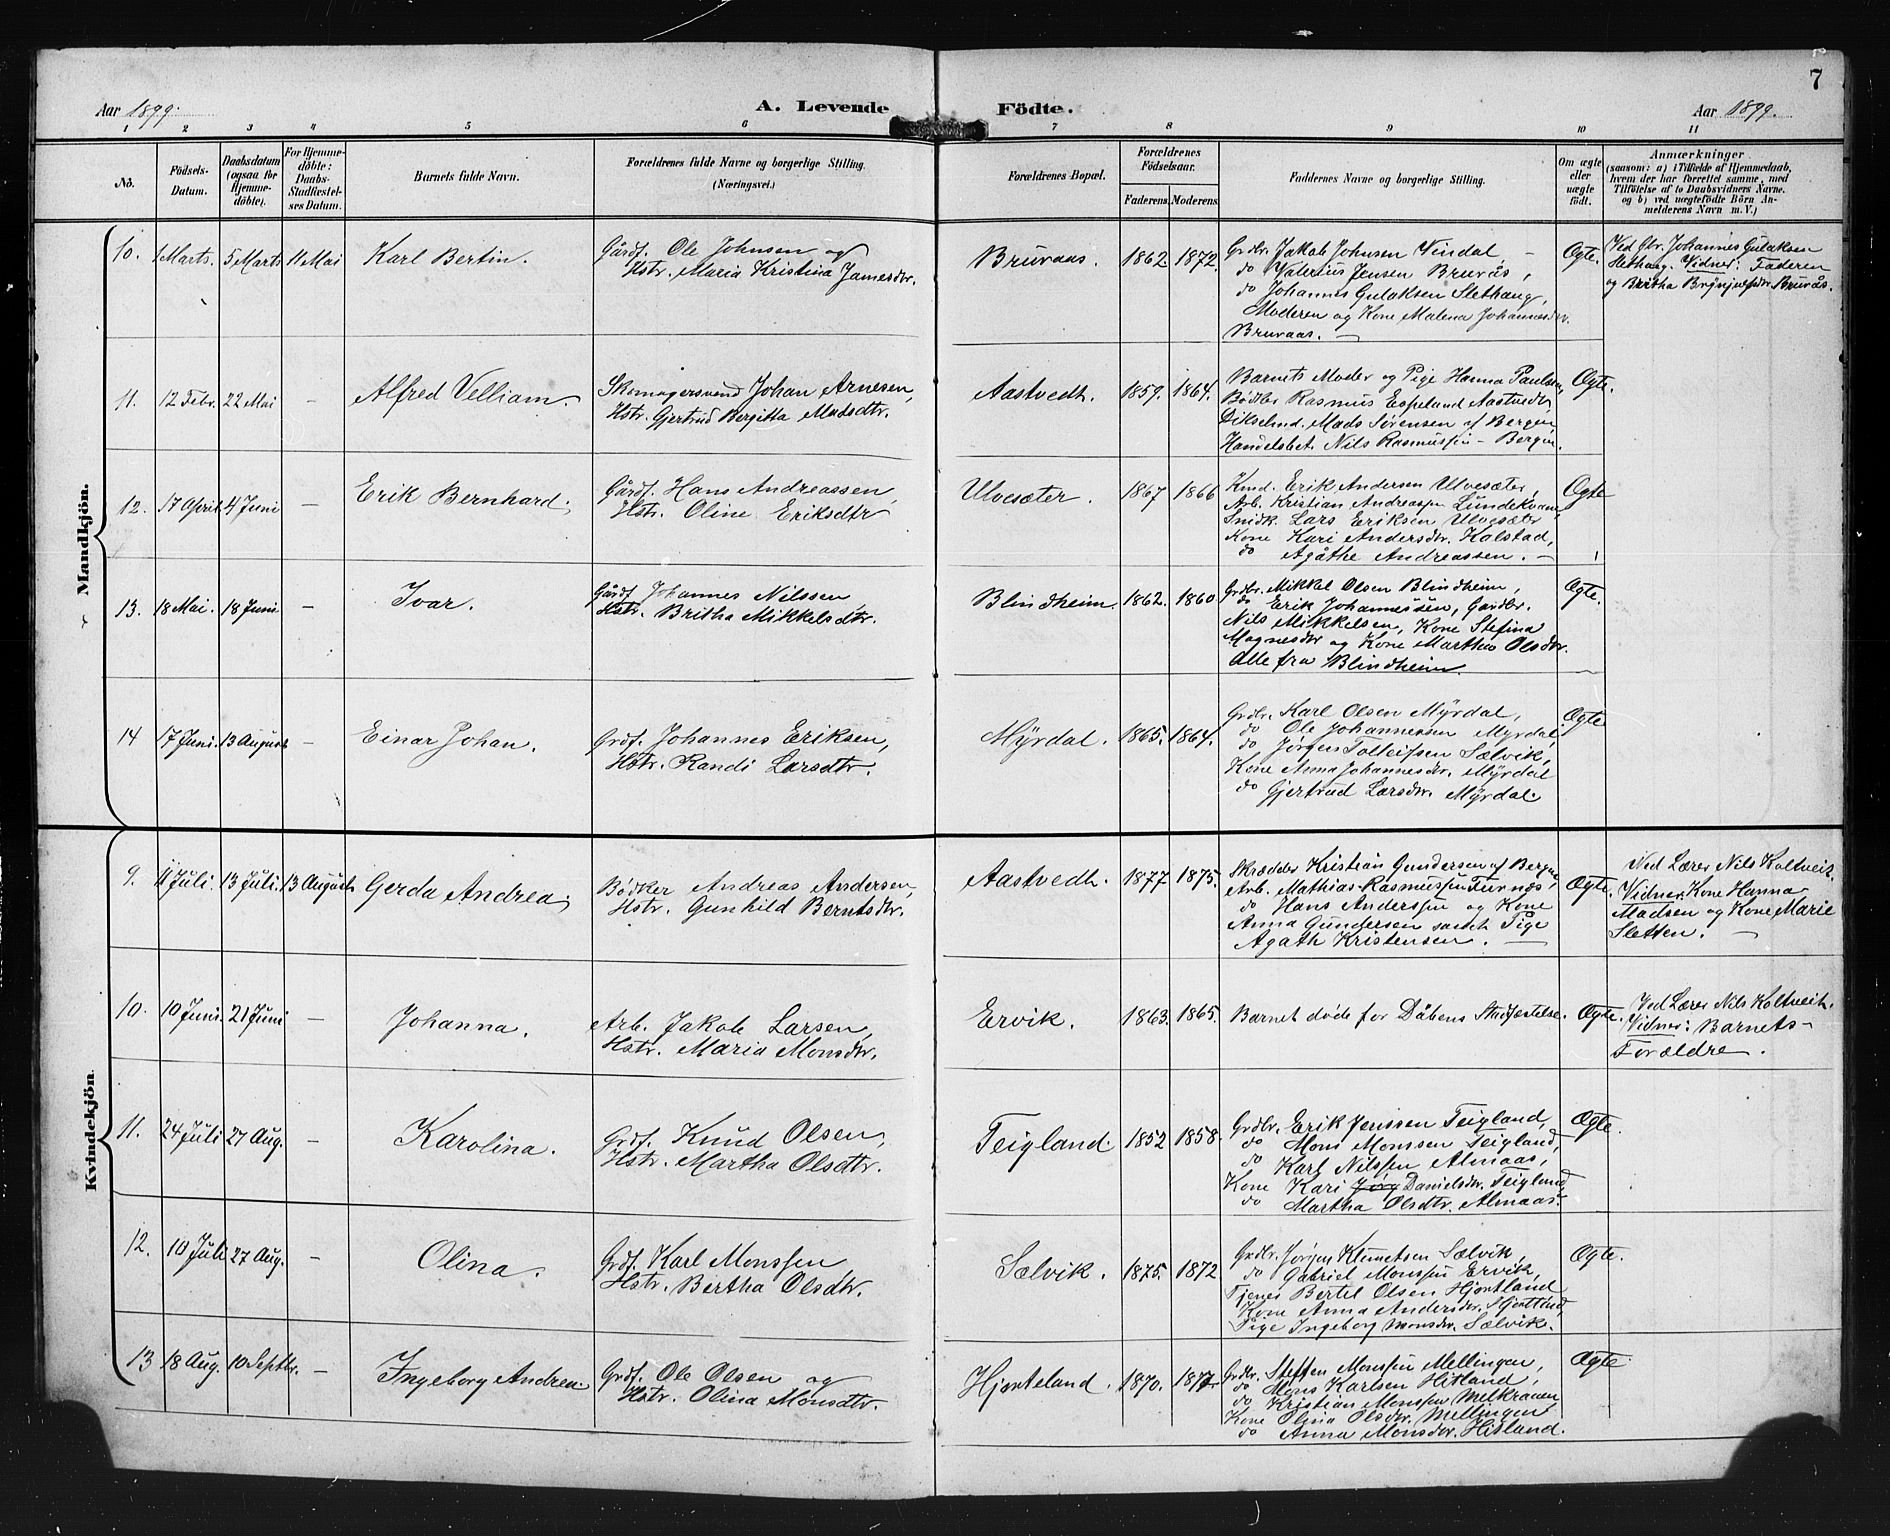 7
Aar 1899. A. Levende Födte. Aar 1899.
1 2 3 4 5 6 7 8 9 10 11
No. Födsels-Datum. Daabsdatum (ogsaa for Hjemme-döbte). For Hjemme-döbte: Daabs-Stadfæstel-ses Datum. Barnets fulde Navn. Forældrenes fulde Navne og borgerlige Stilling. (Næringsvei.) Forældrenes Bopæl. Forældrenes Födselsaar. Faderens. Moderens. Faddernes Navne og borgerlige Stilling. Om ægte eller uægte födt. Anmærkninger (saasom: a) i Tilfælde af Hjemmedaab, hvem der har forrettet samme, med Tilföielse af to Daabsvidners Navne. og b) ved uægtefödte Börn An-melderens Navn m. V.)
Mandkjön.
10. 1 Marts. 5 Marts 11 Mai Karl Bertin. Gårdf. Ole Johnsen og Bruvaas. 1862 1872. Grdbr. Jakob Johnsen Vindal, Ægte. Ved Gbr. Johannes Gulaksen
Hstr. Maria Kristina Jamesdtr. do Valerius Jensen Bruvås, Slethaug. Vidner: Faderen
do Johannes Gulaksen Slethaug, og Britha Brynjulfsdr. Bruvås.
Moderen og Kone Malena Johannesdr.
Bruvaas.
11. 12 Febr. 22 Mai - Alfred Velliam. Skomagersvend Johan Arnesen, Aastvedt. 1859. 1864. Barnets Moder og Pige Hanna Paulsen, Ægte.
Hstr. Gjertrud Bergitta Madsdtr. Bødker Rasmus Espeland Aastvedt,
Mads Sørensen af Bergen
Handelsbet. Nils Rasmussen - Bergen.
12. 17 April 4 Juni - Erik Bernhard. Gårdf. Hans Andreassen, Ulvesæter. 1867 1866 Kmd. Erik Andersen Ulvesæter, Ægte
Hstr. Oline Eriksdtr Arb. Kristian Andreassen Lundekvam,
Snidk. Lars Eriksen Ulvesæter
Kone Kari Andersdr. Kalstad,
do Agåthe Andreassen.
13. 18 Mai. 18 Juni - Ivar. Gårdf. Johannes Nilssen, Blindheim. 1862. 1860. Grdbr. Mikkel Olsen Blindheim, Ægte.
Hstr. Britha Mikkelsdtr. do Erik Johannessen, Gårdbr.
Nils Mikkelsen, Kone Stefina
Magnesdr og Kone Martha Olsdr.
Alle fra Blindheim.
14 17 Juni. 13 August - Einar Johan. Grdf. Johannes Eriksen, Myrdal. 1865. 1864. Grdbr. Karl Olsen Myrdal, Ægte
Hstr. Randi Larsdtr. do Ole Johannessen Myrdal,
do Jørgen Tolleifsen Sælvik,
Kone Anna Johannesdr. Myrdal
do Gjertrud Larsdr. Myrdal.
Kvindekjön.
9. 11 Juli. 13 Juli. 13 August Gerda Andrea. Bødker Andreas Andersen, Aastvedt. 1877 1875. Skrædder Kristian Gundersen af Bergen, Ægte. Ved Lærer Nils Koltveit.
Hstr. Gunhild Berntsdtr. Arb. Mathias Rasmussen Turnæs, Vidner. Kone Hanna
do Hans Anderssen og Kone Madsen og Kone Marie
Anna Gundersen samt Pige Sletten.
Agath Kristensen.
10. 10 Juni. 21 Juni - Johanna. Arb. Jakob Larsen, Ervik. 1863. 1865. Barnet døde før Dåbens Stadfestelse. Ægte. Ved Lærer Nils Koltveit.
Hstr. Maria Monsdtr. Vidner: Barnets-
Forældre.
11. 24 Juli 27 Aug. - Karolina. Grdf. Knud Olsen, Teigland. 1852 1858. Grdbr. Erik Jenssen Teigland, Ægte.
Hstr. Martha Olsdtr. do Mons Monssen Teigland,
do Karl Nilssen Almaas,
Kone Kari Danielsdr. Teigland,
do Martha Olsdtr. Almaas.
12. 10 Juli 27 Aug. - Olina. Grdf. Karl Monssen Sælvik. 1875. 1872 Grdbr. Jørgen Klemetsen Sælvik, Ægte.
Hstr. Bertha Olsdtr. do Gabriel Monssen Ervik,
Tjenes Bertel Olsen Hjortland
Kone Anna Andersdr.
Pige Ingeborg Monsdtr. Sælvik.
13 18 Aug. 10 Septbr. - Ingeborg Andrea. Grdf. Ole Olsen og Hjorteland. 1870. Grdbr. Steffen Monssen Mellingen, Ægte.
Hstr. Olina Monsdtr. do Mons Karlsen Hitland,
do Kristian Monssen
Kone Olina Olsdr. Mellingen,
do Anna Monsdtr. Hisland.